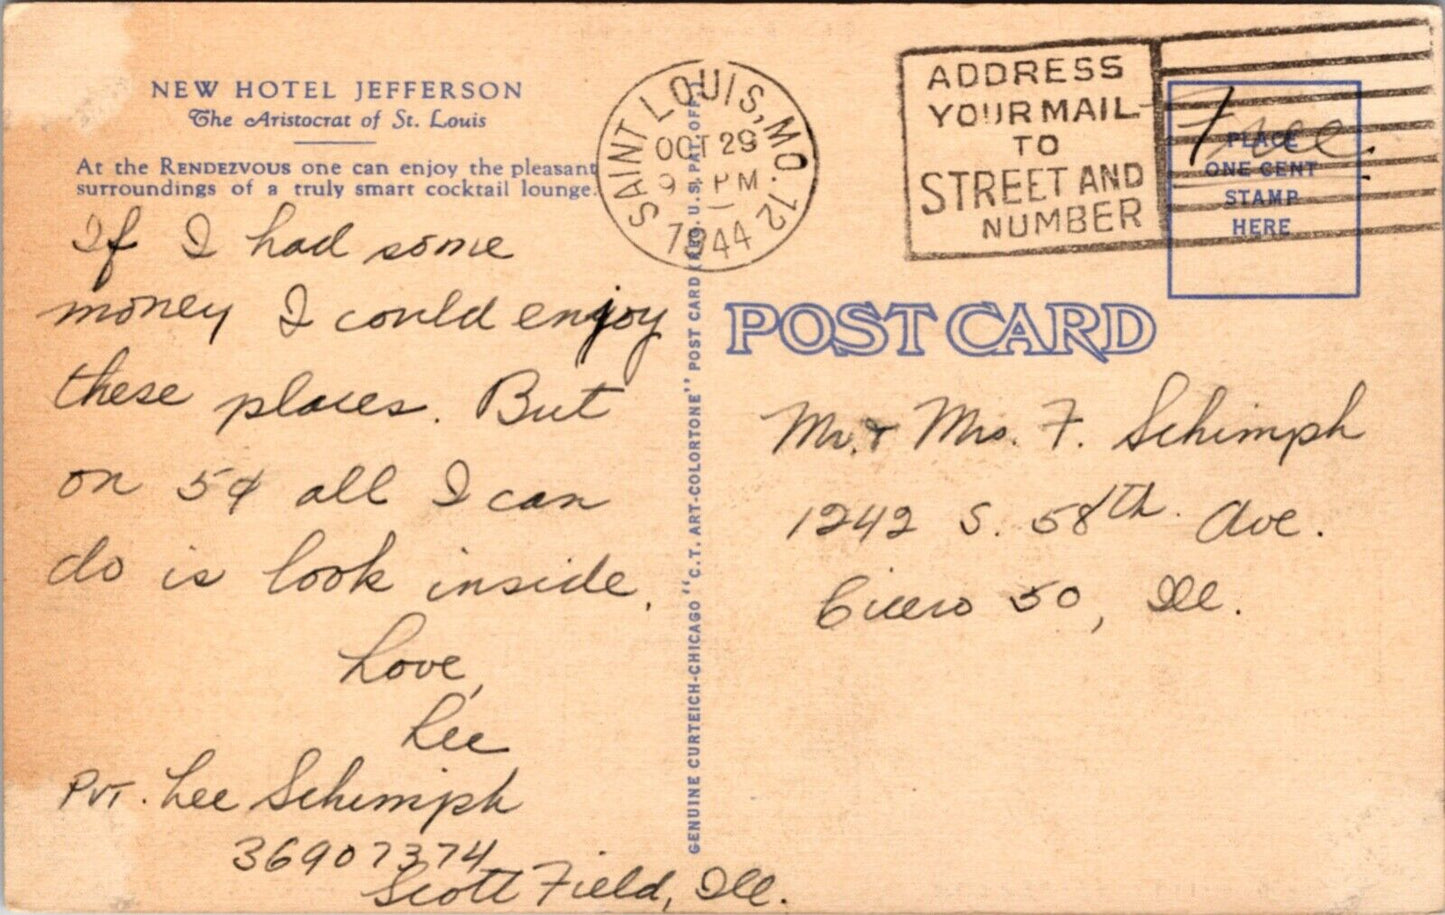 NEW HOTEL JEFFERSON
The Aristocrat of St. Louis
At the RENDEZVOUS one can enjoy the pleasant
surroundings of a truly smart cocktail lounge.
If I had some
money I could enjoy
these places. But
on 5¢ all I can
do is look inside.
Love,
Lee
Pvt. Lee Schimph
36907374
Scott Field, Ill.
GENUINE CURTEICH-CHICAGO "C.T. ART-COLORTONE" POST CARD (REG. U.S. PAT. OFF.)
SAINT LOUIS, MO. 12
OCT 29
9 PM
1944
ADDRESS
YOUR MAIL
TO
STREET AND
NUMBER
Free.
PLACE
ONE CENT
STAMP
HERE
POST CARD
Mr. & Mrs. F. Schimph
1242 S. 58th. Ave.
Cicero 50, Ill.